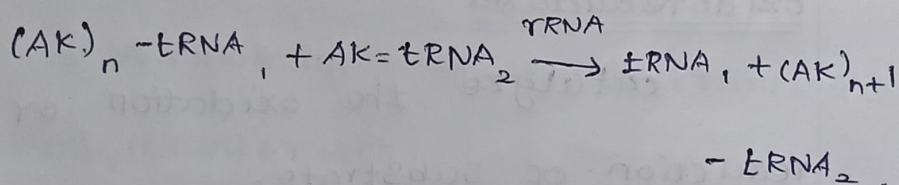 (AK)n - tRNA1 + AK = tRNA2 rRNA → tRNA1 + (AK)n+1
- tRNA2